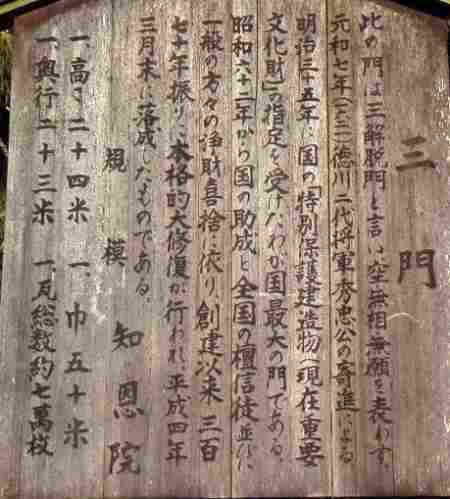 三門
此の門は三解脱門と言い、空無相無願を表わす。
元和七年(一六二一)徳川二代将軍秀忠公の寄進による
明治三十五年に国の「特別保護建造物(現在重要
文化財)」の指定を受けたわが国最大の門である。
昭和六十二年から国の助成と全国の檀信徒並びに
一般の方々の浄財喜捨に依り、創建以来三百
七十年振りに本格的大修復が行われ、平成四年
三月末に落成したものである。
規模 知恩院
一、高さ二十四米 一、巾五十米
一、奥行二十三米 一、瓦総数約七萬枚